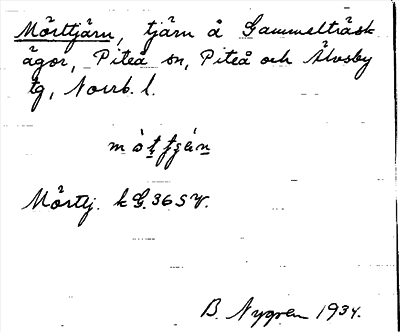 Mörttjärn, tjärn å Gammelträsk
ägor, Piteå sn, Piteå och Älvsby
tg, Norrb. l.
Mörttj. k G. 365 V.
B. Nygren 1934.